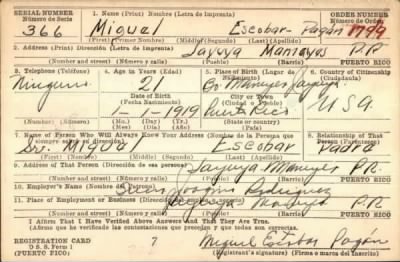 SERIAL NUMBER 1. Name (Print) Nombre (Letra de Imprenta) ORDER NUMBER
Número de Serie Número de Orden
366 Miguel Escobar Pagán 1799
(First) (Primer Nombre) (Middle) (Segundo) (Last) (Apellido)
2. Address (Print) Dirección (Letra de Imprenta) Jayuya Mameyes P.R.
Number and street) (Número y calle) (Town) (Pueblo) (Barrio) PUERTO RICO
3. Telephone (Teléfono) 4. Age in Years (Edad) 5. Place of Birth (Lugar de Nacimiento) 6. Country of Citizenship (Ciudadanía)
Ninguno 21 Bo Mameyes Jayuya
Date of Birth (Fecha Nacimiento) Town
(Ciudad o Pueblo)
1 - 1919 Puerto Rico USA
(Exchange) (Number) (Número) (Mo.) (Mes) (Day) (Día) (Yr.) (Año) (State or country) (Estado o país)
7. Name of Person Who Will Always Know Your Address (Nombre de la Persona que siempre sabrá su dirección) 8. Relationship of That Person (Parentesco)
Sr. Miguel Escobar Padre
(Mr., Mrs., Miss) (First) (Primer Nombre) (Middle) (Segundo) (Last) (Apellido)
9. Address of That Person (Dirección de esa persona) Jayuya Mameyes P.R.
(Number and street) (Número y calle) (Town) (Pueblo) (Barrio) PUERTO RICO
10. Employer's Name (Nombre del Patrono) Joaquin Rodriguez
11. Place of Employment or Business (Dirección de empleo o negocio) Jayuya Mameyes P.R.
(Number and street) (Número y calle) (Town) (Pueblo) (Barrio) PUERTO RICO
I Affirm That I Have Verified Above Answers and That They Are True.
(Afirmo que he verificado las contestaciones que preceden y que son ciertas.)
REGISTRATION CARD 7 Miguel Escobar Pagán
D S S. Form 1 (Registrant's signature) (Firma o marca del inscrito)
(PUERTO RICO)